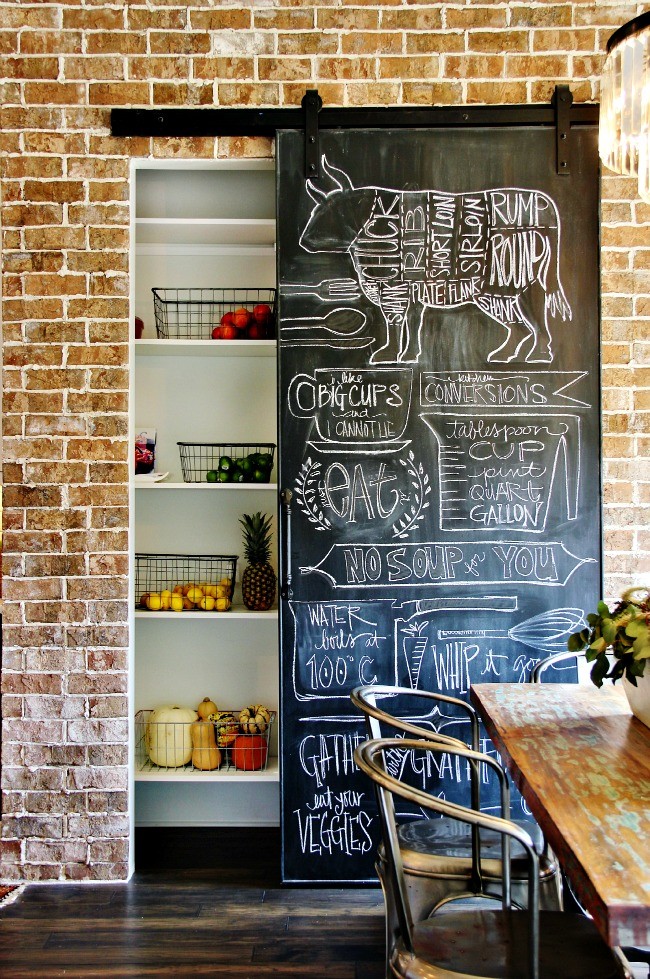 CHUCK
RIB
SHORT LOIN
SIRLOIN
RUMP
ROUND
SHANK
PLATE
FLANK
SHANK
i like
BIG CUPS
and
I CANNOT LIE
kitchen
CONVERSIONS
tablespoon
CUP
pint
QUART
GALLON
eat
NO SOUP for YOU
WATER
boils at
100°C
WHIP it
GATHER
GRATEFUL
eat your
VEGGIES